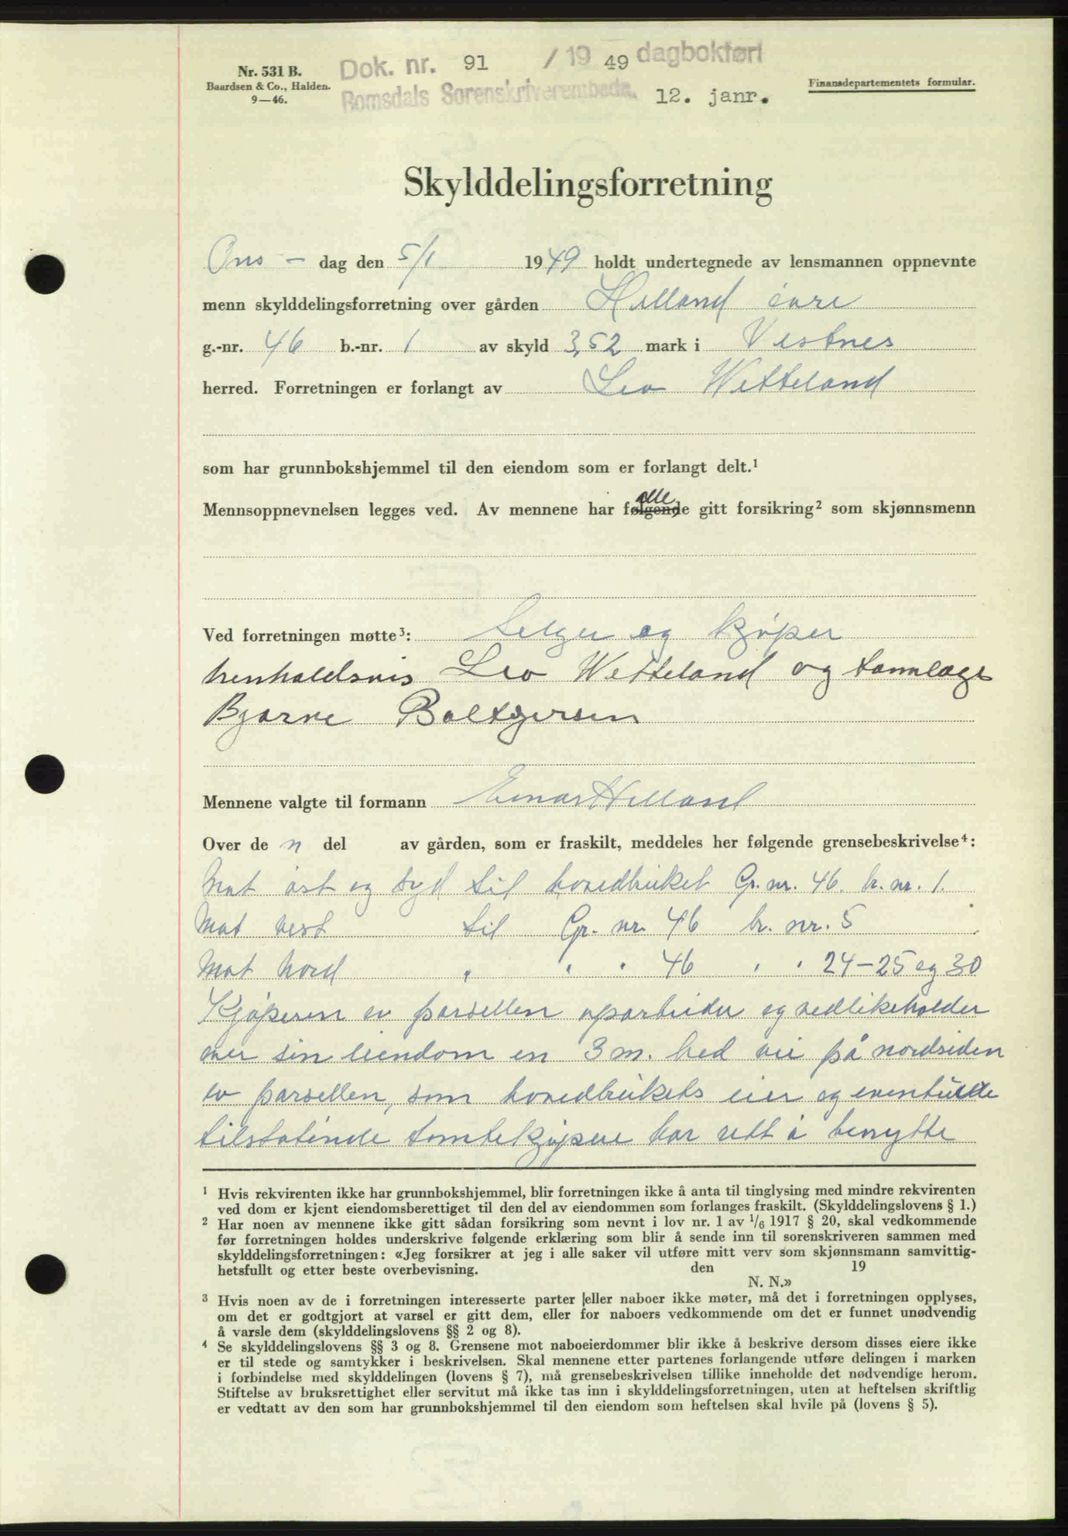 Nr. 531 B.
Baardsen & Co., Halden.
9—46.
Dok. nr. 91 / 19 49 dagbokført
Romsdals Sorenskriverembede. 12. janr.
Finansdepartementets formular.
Skylddelingsforretning
Ons - dag den 5/1 1949 holdt undertegnede av lensmannen oppnevnte
menn skylddelingsforretning over gården Helland øvre
g.-nr. 46 b.-nr. 1 av skyld 3,52 mark i Vestnes
herred. Forretningen er forlangt av Leo Wetteland
som har grunnbokshjemmel til den eiendom som er forlangt delt.¹
Mennsoppnevnelsen legges ved. Av mennene har alle følgende gitt forsikring² som skjønnsmenn
Ved forretningen møtte³: Selger og kjøper
henholdsvis Leo Wetteland og tannlæge
Bjarne Baltzersen
Mennene valgte til formann Einar Helland
Over de n del av gården, som er fraskilt, meddeles her følgende grensebeskrivelse⁴:
Mot øst og syd til hovedbruket Gr. nr. 46. br. nr. 1.
Mot vest til Gr. nr. 46 br. nr. 5
Mot nord " " " 46 " " 24-25 og 30
Kjøperen av parsellen oparbeider og vedlikeholder
over sin eiendom en 3 m. bred vei på nordsiden
av parsellen, som hovedbrukets eier og eventuelle
tilstøtende tomtekjøpere har rett å benytte
¹ Hvis rekvirenten ikke har grunnbokshjemmel, blir forretningen ikke å anta til tinglysing med mindre rekvirenten
ved dom er kjent eiendomsberettiget til den del av eiendommen som forlanges fraskilt. (Skylddelingslovens § 1.)
² Har noen av mennene ikke gitt sådan forsikring som nevnt i lov nr. 1 av 1/6 1917 § 20, skal vedkommende
før forretningen holdes underskrive følgende erklæring som blir å sende inn til sorenskriveren sammen med
skylddelingsforretningen: «Jeg forsikrer at jeg i alle saker vil utføre mitt verv som skjønnsmann samvittig-
hetsfullt og etter beste overbevisning. den 19
N. N.»
³ Hvis noen av de i forretningen interesserte parter eller naboer ikke møter, må det i forretningen opplyses,
om det er godtgjort at varsel er gitt dem, eller for naboers vedkommende om det er funnet unødvendig
å varsle dem (skylddelingslovens §§ 2 og 8).
⁴ Se skylddelingslovens §§ 3 og 8. Grensene mot naboeierdommer blir ikke å beskrive dersom disses eiere ikke
er til stede og samtykker i beskrivelsen. Skal mennene etter partenes forlangende utføre delingen i marken
i forbindelse med skylddelingen (lovens § 7), må grensebeskrivelsen tillike inneholde det nødvendige herom.
Stiftelse av bruksrettighet eller servitut må ikke tas inn i skylddelingsforretningen, uten at heftelsen skriftlig
er vedtatt av den som har grunnbokshjemmel til den eiendom som heftelsen skal hvile på (lovens § 5).